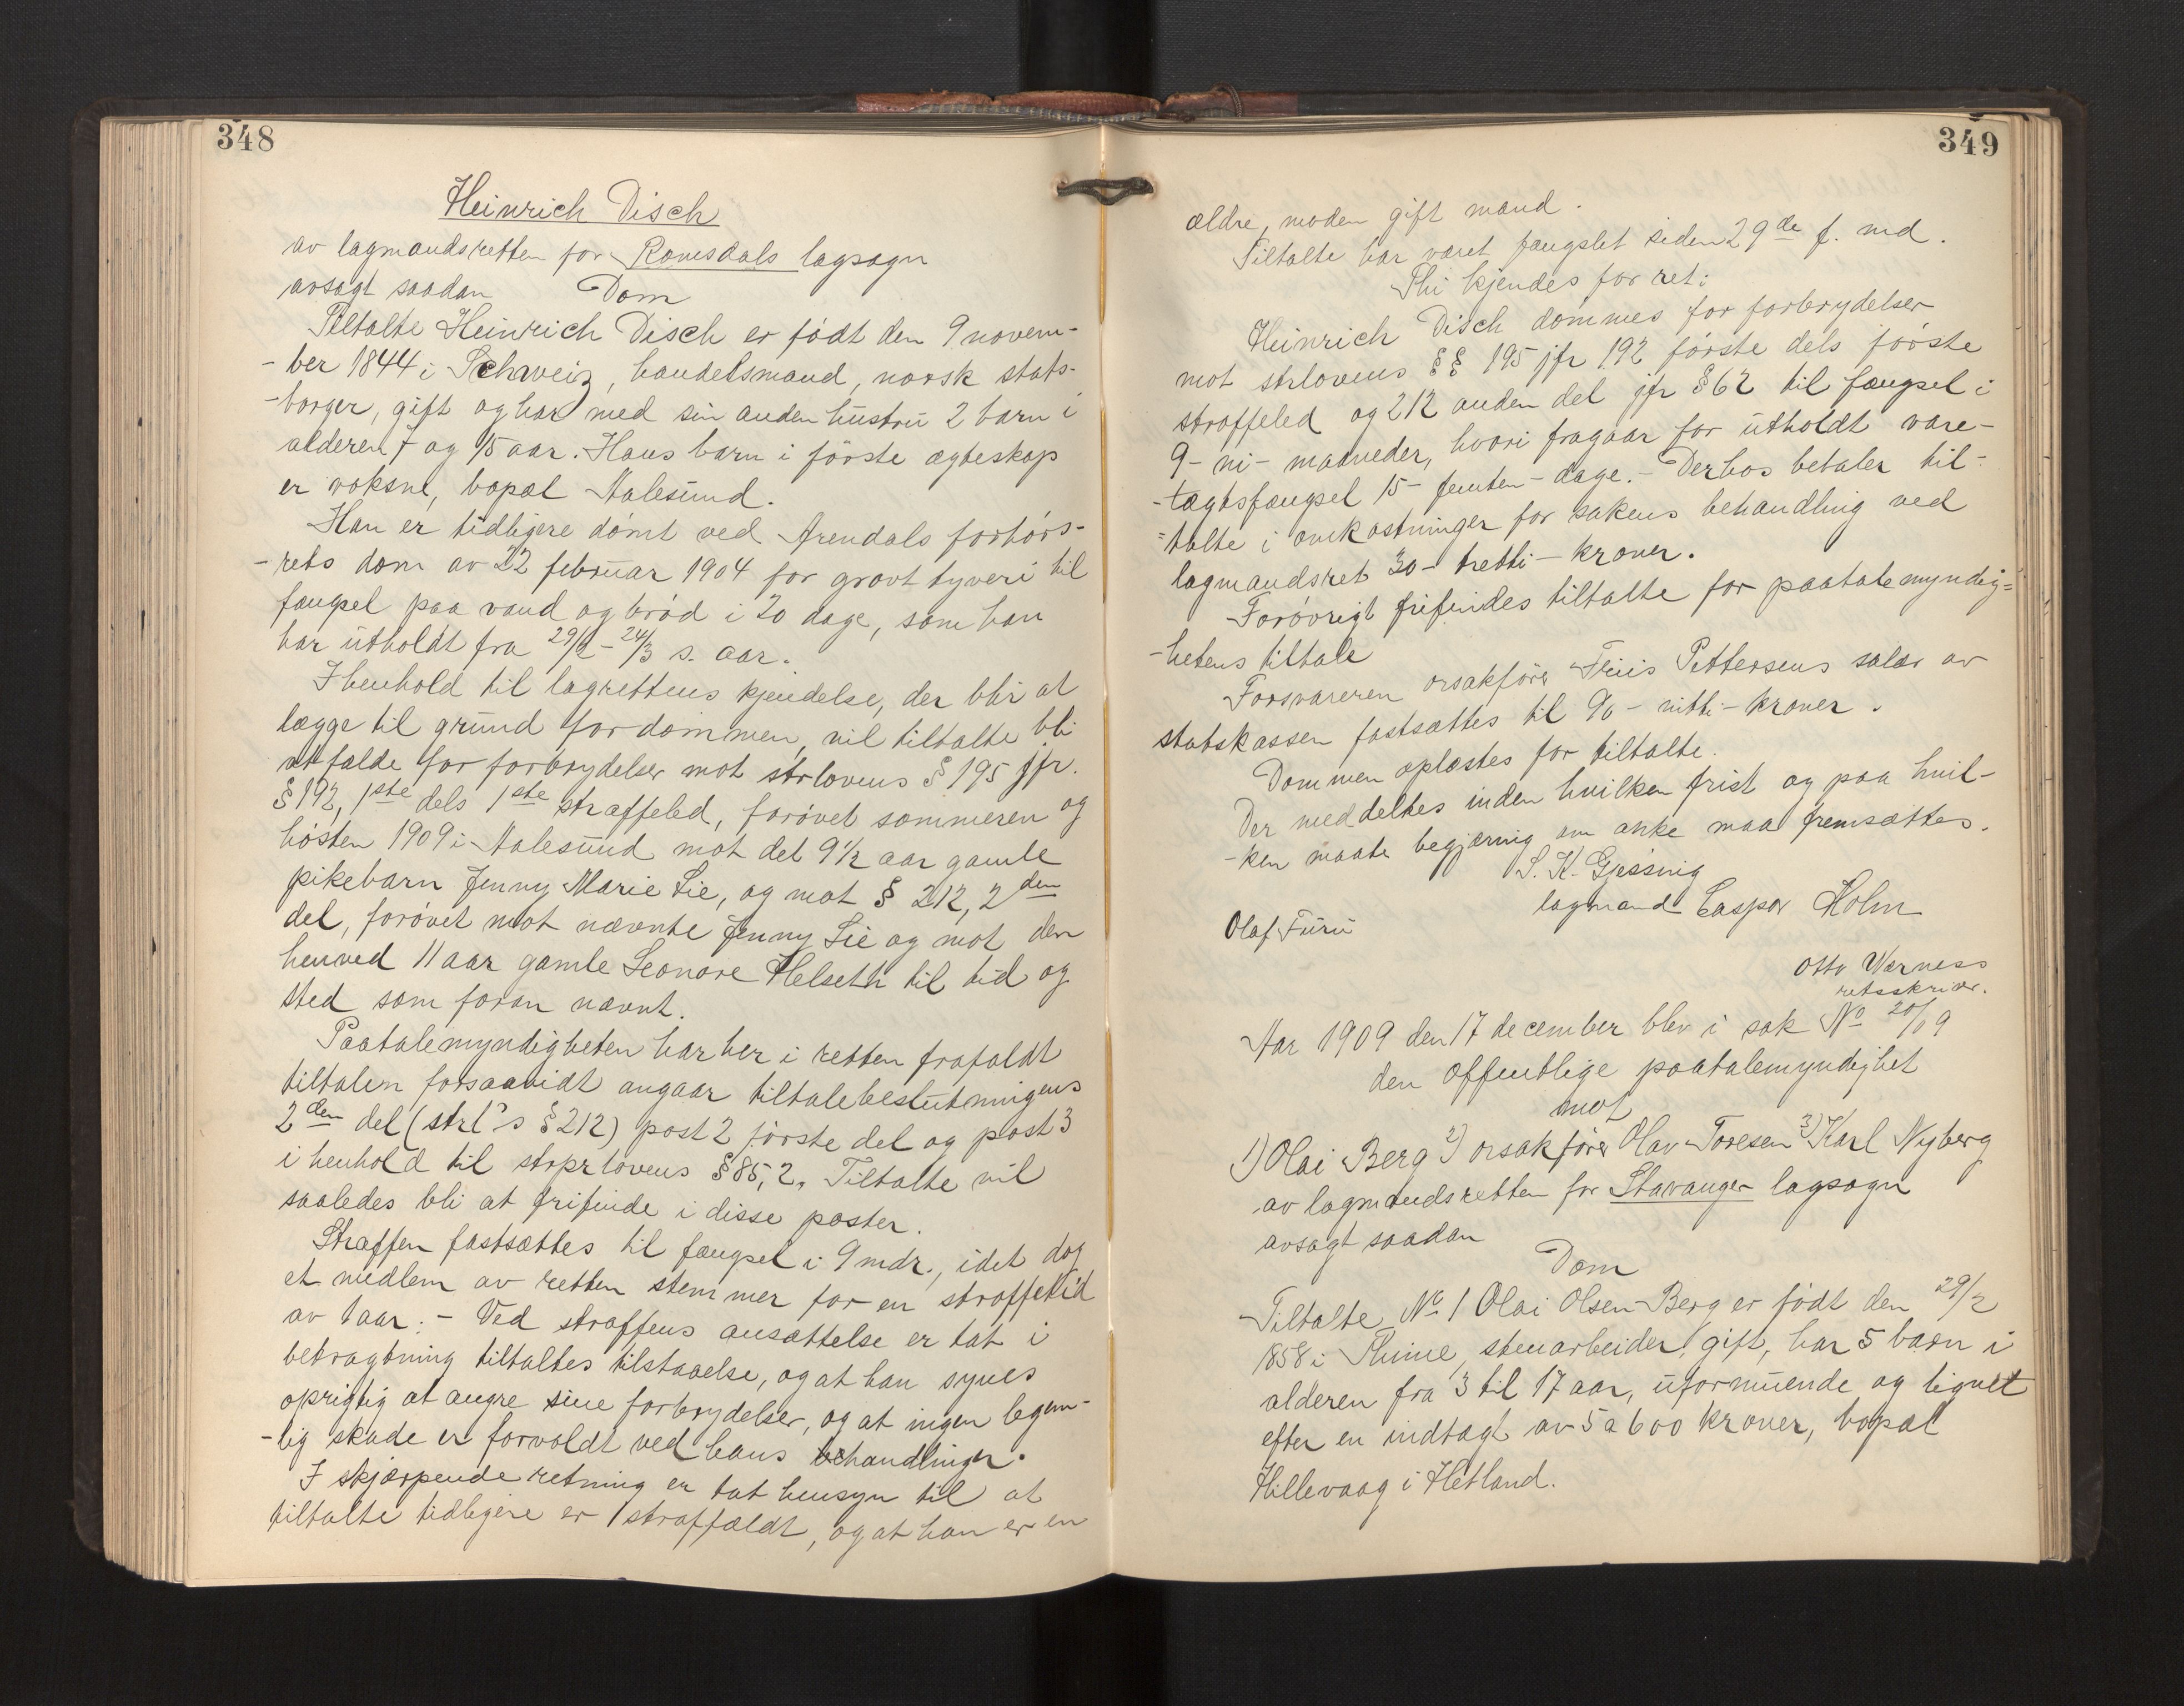 348
Heinrich Disch
av lagmandsretten for Romsdals lagsogn
avsagt saadan Dom
Tiltalte Heinrich Disch er født den 9 novem-
-ber 1844 i Schweiz, handelsmand, norsk stats-
-borger, gift og har med sin anden hustru 2 barn i
alderen 7 og 15 aar. Hans barn i første ægteskap
er voksne, bopæl Aalesund.
Han er tidligere dømt ved Arendals forhørs-
-rets dom av 22 februar 1904 for grovt tyveri til
fængsel paa vand og brød i 20 dage, som han
har utholdt fra 29/2 - 24/3 s. aar.
I henhold til lagrettens kjendelse, der blir at
lægge til grund for dommen, vil tiltalte bli
at fælde for forbrydelser mot strlovens § 195 jfr.
§ 192, 1ste dels 1ste straffeled, forøvet sommeren og
høsten 1909 i Aalesund mot det 9½ aar gamle
pikebarn Jenny Marie Lie, og mot § 212, 2den
del, forøvet mot nævnte Jenny Lie og mot den
henved 11 aar gamle Leonore Helseth til tid og
sted som foran nævnt.
Paatalemyndigheten har her i retten frafaldt
tiltalen forsaavidt angaar tiltalebeslutningens
2den del (strl's § 212) post 2 første del og post 3
i henhold til stprlovens § 85, 2. Tiltalte vil
saaledes bli at frifinde i disse poster.
Straffen fastsættes til fængsel i 9 mdr., idet dog
et medlem av retten stemmer for en straffetid
av 1 aar. - Ved straffens ansættelse er tat i
betragtning tiltaltes tilstaaelse, og at han synes
oprigtig at angre sine forbrydelser, og at ingen legem-
-lig skade er forvoldt ved hans behandlinger.
I skjærpende retning er tat hensyn til at
tiltalte tidligere er straffældt, og at han er en
349
ældre, moden gift mand.
Tiltalte har været fængslet siden 29de f. md.
Thi kjendes for ret:
Heinrich Disch dømmes for forbrydelser
mot strlovens §§ 195 jfr 192 første dels første
straffeled og 212 anden del jfr § 62 til fængsel i
9 - ni - maaneder, hvori fragaar for utholdt vare-
-tægtsfængsel 15 - femten - dage. - Derhos betaler til-
=talte i omkostninger for sakens behandling ved
lagmandsret 30 - tretti - kroner.
Forøvrigt frifindes tiltalte for paatalemyndig=
-hetens tiltale
Forsvareren orsakfører Pettersens salær av
statskassen fastsættes til 90 - nitti - kroner.
Dommen oplæstes for tiltalte.
Der meddeltes inden hvilken frist og paa hvil-
-ken maate begjæring om anke maa fremsættes.
S. K. Gjessing
lagmand Caspar Holm
Olaf Furu
Otto Værness
retsskriver.
Aar 1909 den 17 december blev i sak No 20/09
den offentlige paatalemyndighet
mot
1) Olai Berg 2) orsakfører Olav Toresen 3) Karl Nyberg
av lagmandsretten for Stavanger lagsogn
avsagt saadan
Dom
Tiltalte No 1 Olai Olsen Berg er født den 29/2
1858 i Thime, stenarbeider, gift, har 5 barn i
alderen fra 3 til 17 aar, uformuende og lignet
efter en indtægt av 5 a 600 kroner, bopæl
Hillevaag i Hetland.